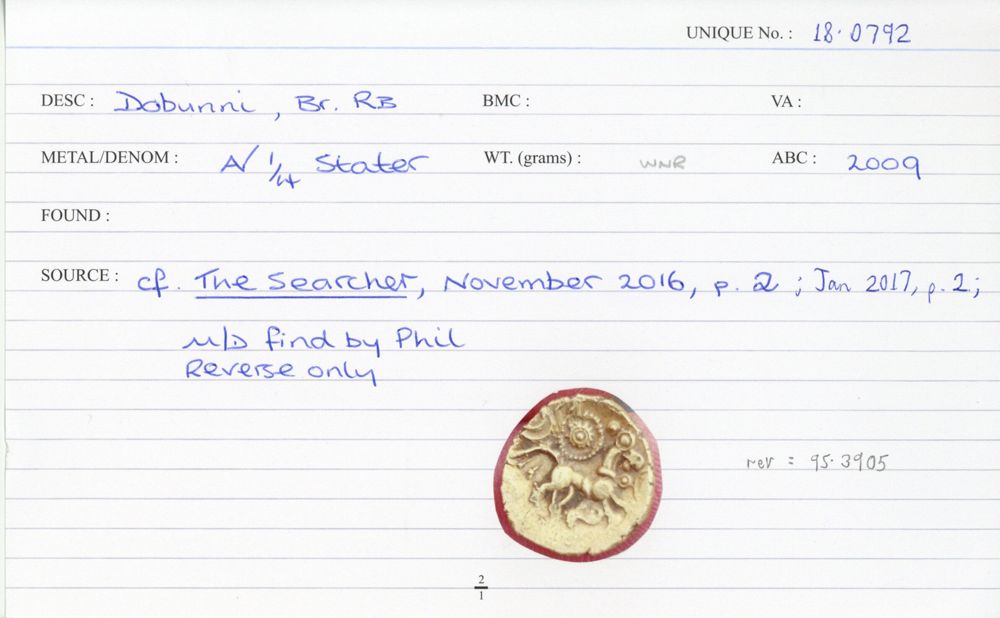 UNIQUE No. : 18.0792
DESC : Dobunni, Br. RB BMC : VA :
METAL/DENOM : A/ 1/4 Stater WT. (grams) : WNR ABC : 2009
FOUND :
SOURCE : cf. The Searcher, November 2016, p. 2 ; Jan 2017, p. 2 ;
M/D find by Phil
Reverse only
rev = 95.3905
2
1